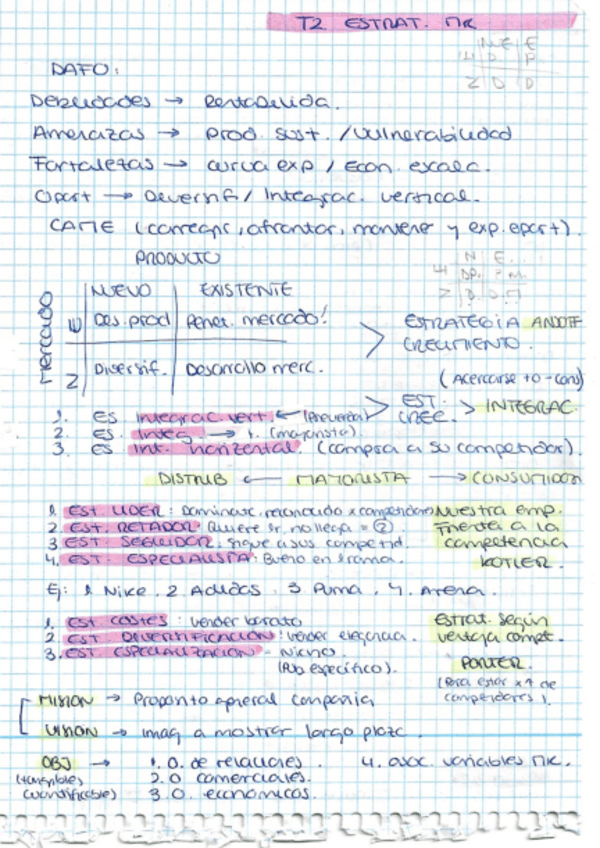 T2 ESTRAT. MK
N.E E
DAFO:
Debilidades → Rentab.
Amenazas → prod. sust. / vulnerabilidad
Fortalezas → curva exp / Econ. escala.
Oport → Diversif / Integrac. vertical.
CAME (corregir, afrontar, mantener y exp. oport).
PRODUCTO
N E.
NUEVO EXISTENTE
Mercado
E Des. prod Penet. mercado!
N Diversif. Desarrollo merc.
ESTRATEGIA ANSOFF
CRECIMIENTO.
(Acercarse +o-cons)
1. ES integrac. vert. ←
EST. CREC. > INTEGRAC.
2. ES. Integ. → (mayorista).
3. ES int. horizontal. (compra a su competidor).
DISTRIB ← MAYORISTA → CONSUMIDOR
1. EST. LIDER: Dominac. reconocido x competidores
2 EST. RETADOR: Quiere sr. no llega = ②.
3 EST SEGUIDOR: Sigue a sus competid.
4. EST. ESPECIALISTA: Bueno en 1 rama.
Nuestra emp.
frente a la
competencia
KOTLER.
Ej: 1. Nike. 2 Adidas. 3 Puma. 4. Arena.
1. EST COSTES: vender barato
2 EST DIVERSIFICACIÓN: vender elegancia.
3. EST. ESPECIALIZACIÓN - Nichos
(Pub específico).
Estrat. según
ventaja compet.
PORTER.
(Para estar x ↑ de
competidores).
MISION → Proposito general compañia
VISION → imag a mostrar largo plazo.
OBJ → 1. O. de relaciones. 4. asoc. variables MK.
(tangibles 2. O comerciales.
cuantificables) 3. O. económicos.